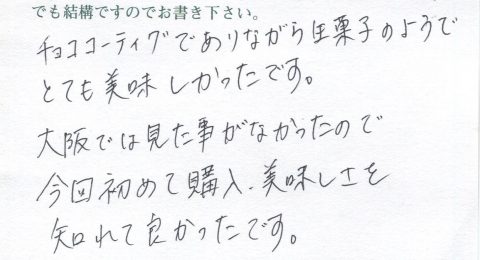 でも結構ですのでお書き下さい。
チョココーティグでありながら生栗子のようで
とても美味しかったです。
大阪では見た事がなかったので
今回初めて購入、美味しさを
知れて良かったです。